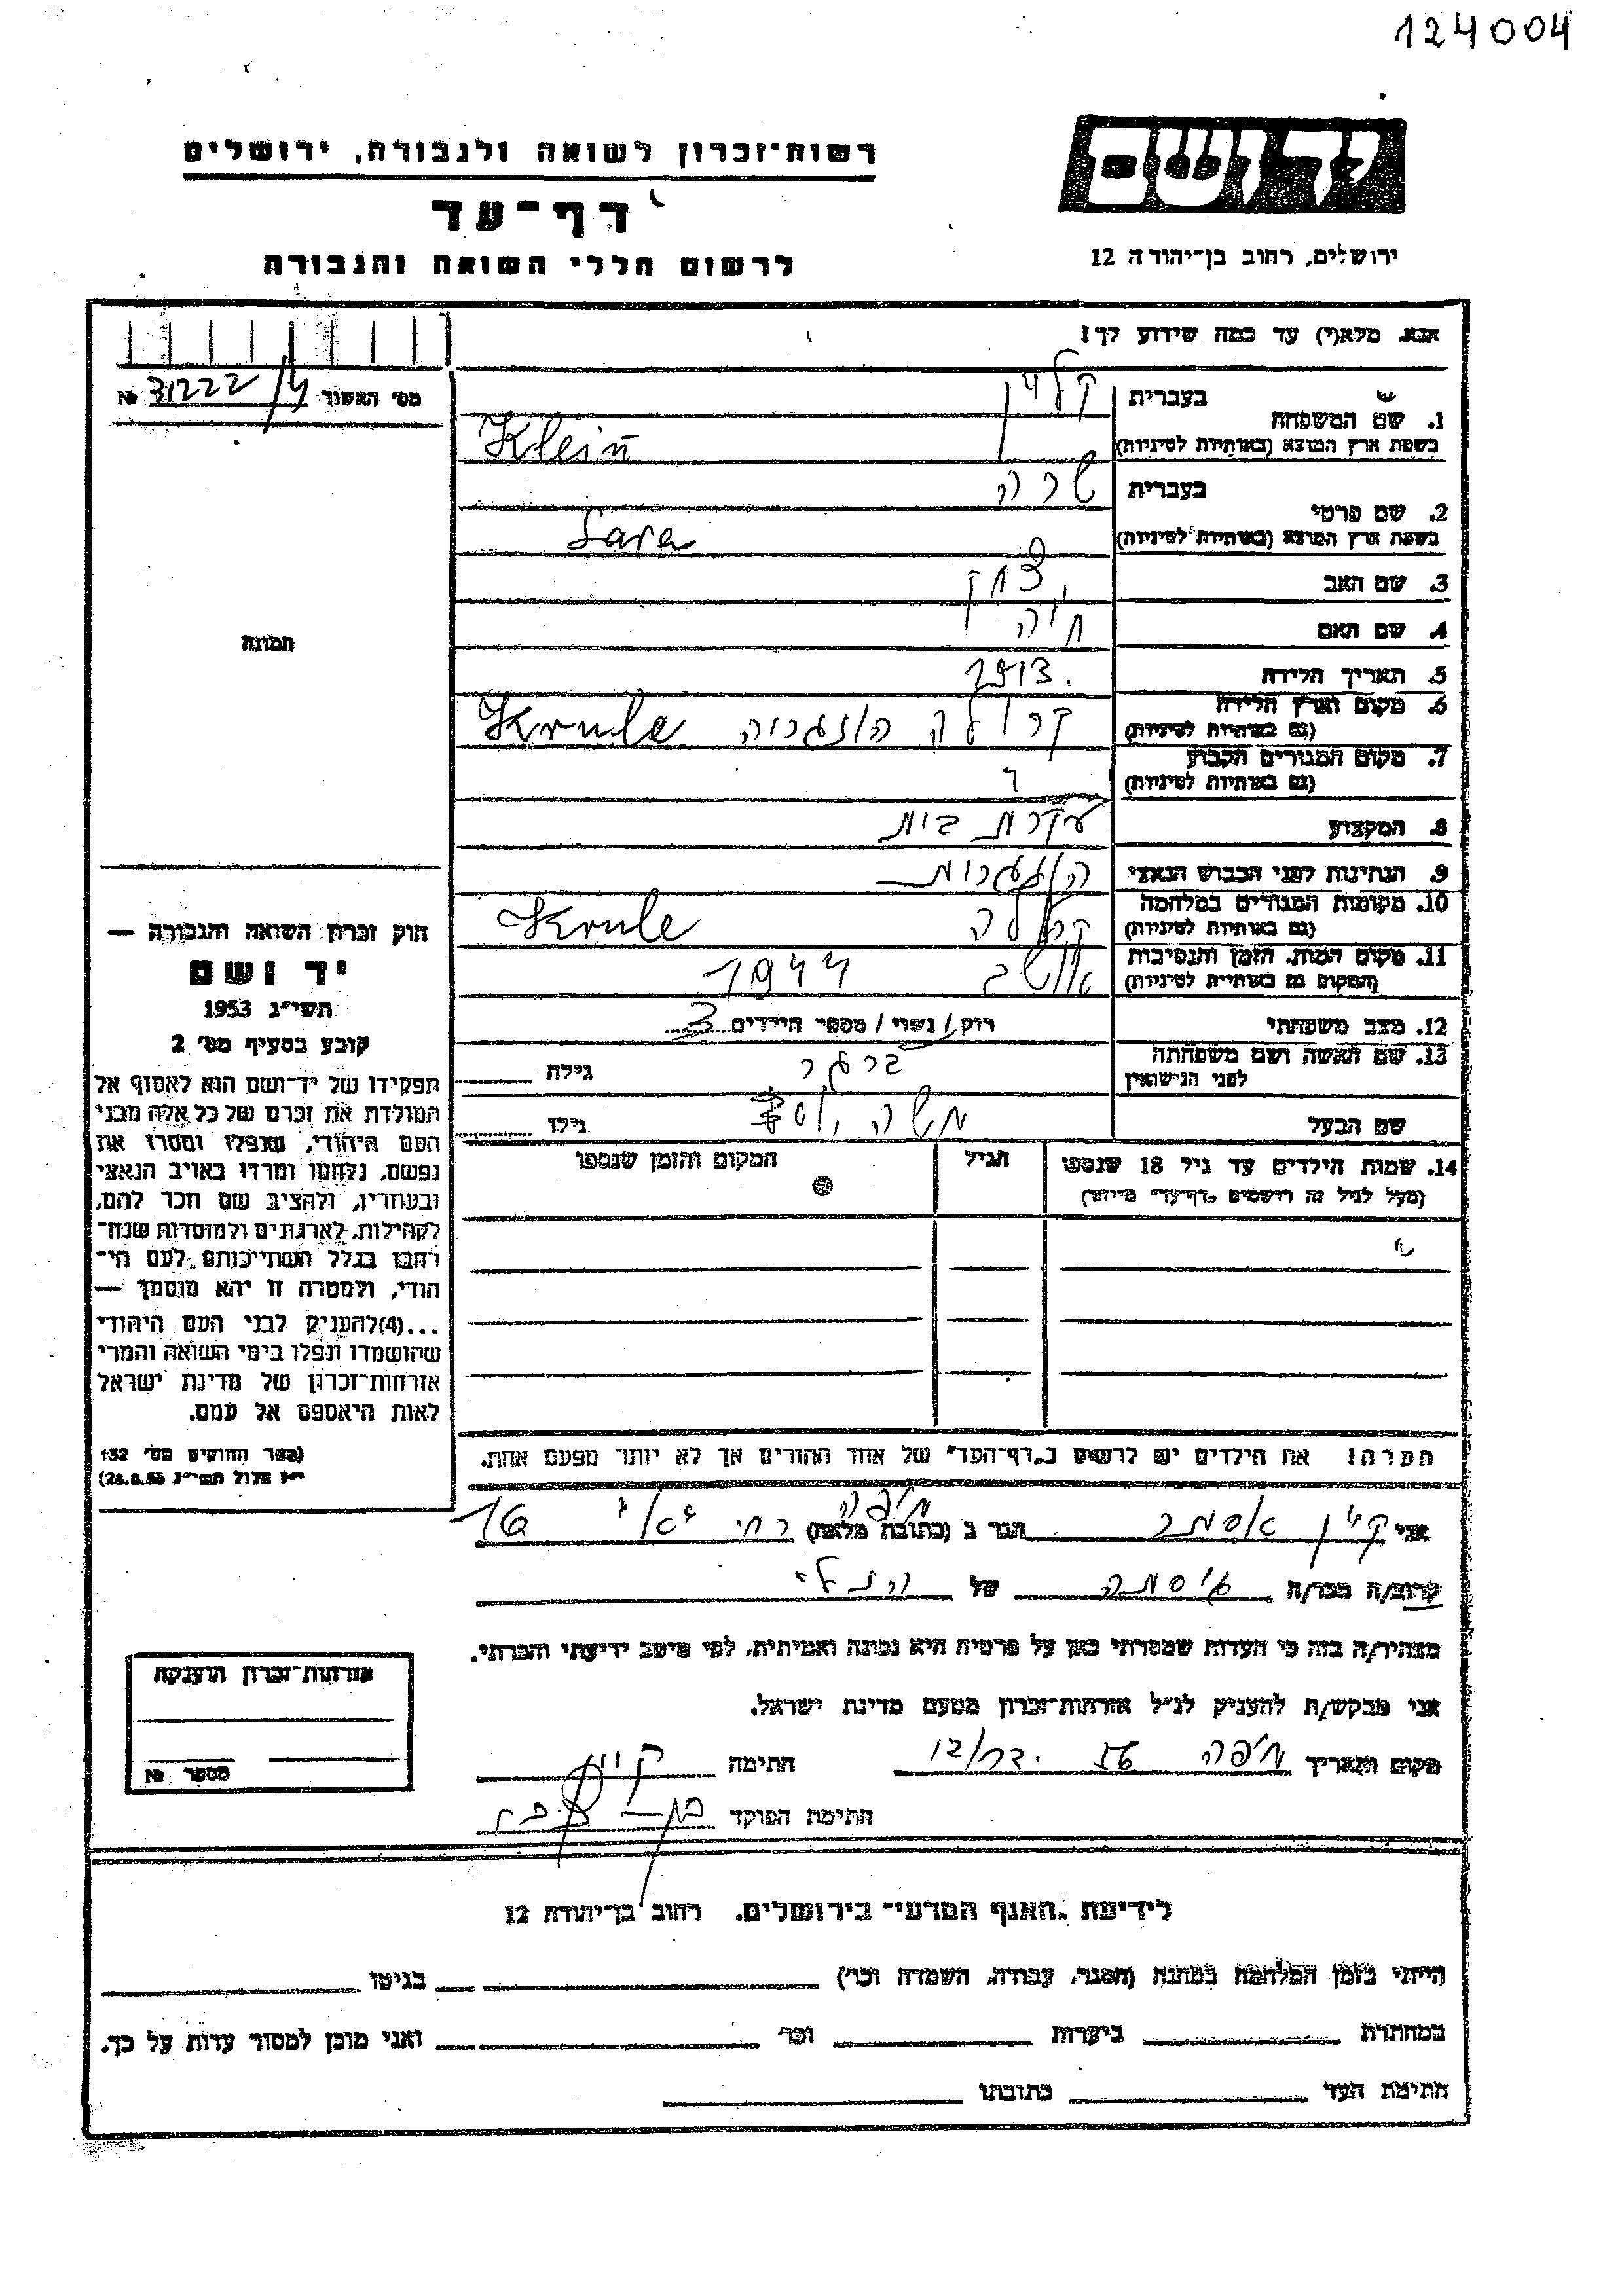 124004
יד ושם
ירושלים, רחוב בן־יהודה 12
רשות־זכרון לשואה ולגבורה, ירושלים
דף־עד
לרשום חללי השואה והגבורה
אנא, מלא(י) עד כמה שידוע לך!
מס׳ האשור 31222/4 №
1. שם המשפחה בעברית קליין
בשפת ארץ המוצא (באותיות לטיניות) Klein
2. שם פרטי בעברית שרה
בשפת ארץ המוצא (באותיות לטיניות) Sara
3. שם האב יצחק
4. שם האם חיה
5. תאריך הלידה 1913.
6. מקום וארץ הלידה (גם באותיות לטיניות) קרולה הונגריה Krule
7. מקום המגורים הקבוע (גם באותיות לטיניות)
8. המקצוע עקרת בית
9. הנתינות לפני הכבוש הנאצי הונגרית
10. מקומות המגורים במלחמה (גם באותיות לטיניות) קרולה Krule
11. מקום המות, הזמן והנסיבות (המקום גם באותיות לטיניות) אושב 1944
12. מצב משפחתי רווק / נשוי / מספר הילדים 3
13. שם האשה ושם משפחתה לפני הנישואין ברגר גילה
שם הבעל משה גילו
14. שמות הילדים עד גיל 18 שנספו
(מעל לגיל זה רושמים "דף־עד" מיוחד)
הגיל
המקום והזמן שנספו
הערה! את הילדים יש לרשום ב"דף־העד" של אחד ההורים אך לא יותר מפעם אחת.
תמונה
חוק זכרון השואה והגבורה —
יד ושם
תשי״ג 1953
קובע בסעיף מס׳ 2
תפקידו של יד־ושם הוא לאסוף אל
המולדת את זכרם של כל אלה מבני
העם היהודי, שנפלו ומסרו את
נפשם, נלחמו ומרדו באויב הנאצי
ובעוזריו, ולהציב שם וזכר להם,
לקהילות, לארגונים ולמוסדות שנח־
רבו בגלל השתייכותם לעם הי־
הודי, ולמטרה זו יהא מוסמך —
...(4)להעניק לבני העם היהודי
שהושמדו ונפלו בימי השואה והמרי
אזרחות־זכרון של מדינת ישראל
לאות היאספם אל עמם.
(ספר החוקים מס׳ 132
י״ז אלול תשי״ג 28.8.53)
אני אסתר הגר ב (כתובת מלאה) חיפה 16
קרוב/ה מכר/ה גיסתה של
מצהיר/ה בזה כי העדות שמסרתי כאן על פרטיה היא נכונה ואמיתית, לפי מיטב ידיעתי והכרתי.
אני מבקש/ת להעניק לנ״ל אזרחות־זכרון מטעם מדינת ישראל.
מקום ותאריך חיפה חתימה
חתימת הפוקד
אזרחות־זכרון הוענקה
מספר №
לידיעת "האגף המדעי" בירושלים, רחוב בן־יהודה 12
הייתי בזמן המלחמה במחנה (הסגר, עבודה, השמדה וכו׳) בגיטו
במחתרת ביערות וכו׳ ואני מוכן למסור עדות על כך.
חתימת העד כתובתו